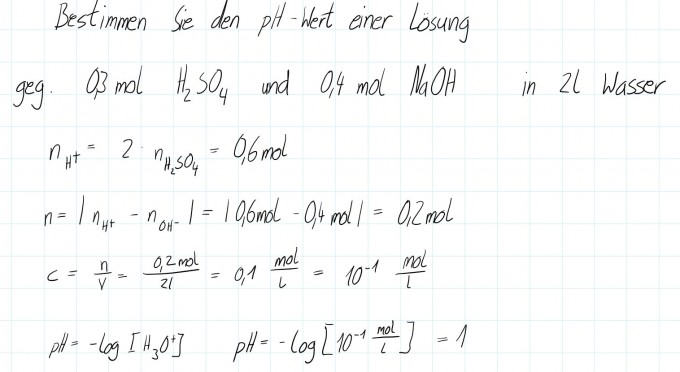 Bestimmen Sie den pH-Wert einer Lösung
geg. 0,3 mol H₂SO₄ und 0,4 mol NaOH in 2l Wasser
n_H⁺ = 2 · n_H₂SO₄ = 0,6mol
n = |n_H⁺ - n_OH⁻| = |0,6mol - 0,4 mol| = 0,2mol
c = n/V = 0,2 mol/2l = 0,1 mol/L = 10⁻¹ mol/L
pH = -log [H₃O⁺] pH = -log [10⁻¹ mol/L] = 1